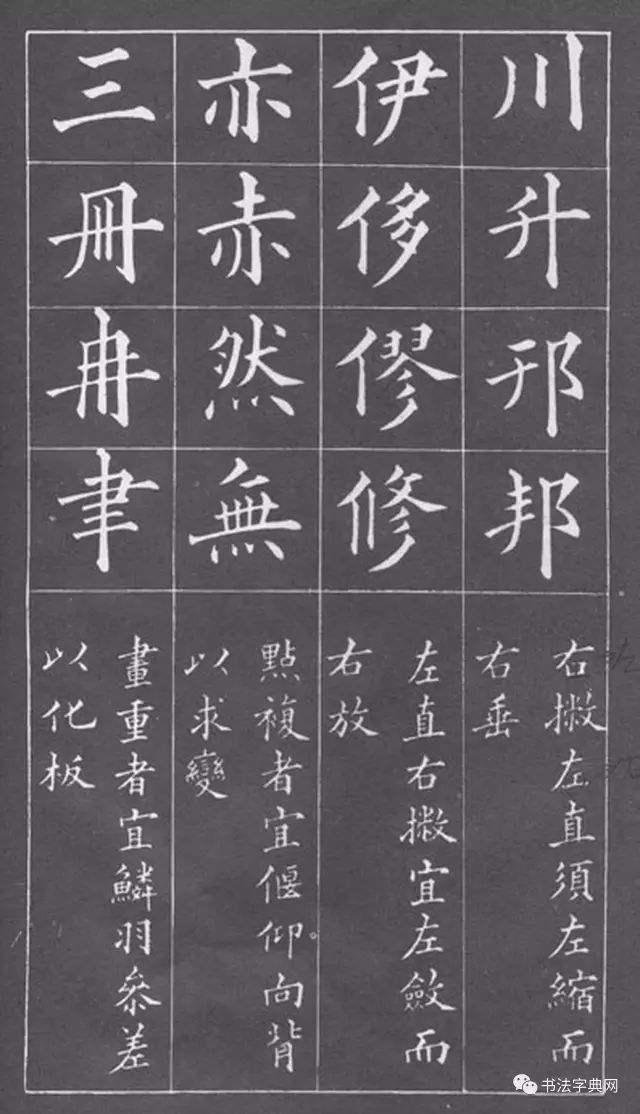 川升邢邦
右撇左直須左縮而
右垂
伊侈僇修
左直右撇宜左斂而
右放
亦赤然無
點複者宜偃仰向背
以求變
三冊冉聿
畫重者宜鱗羽參差
以化板
书法字典网